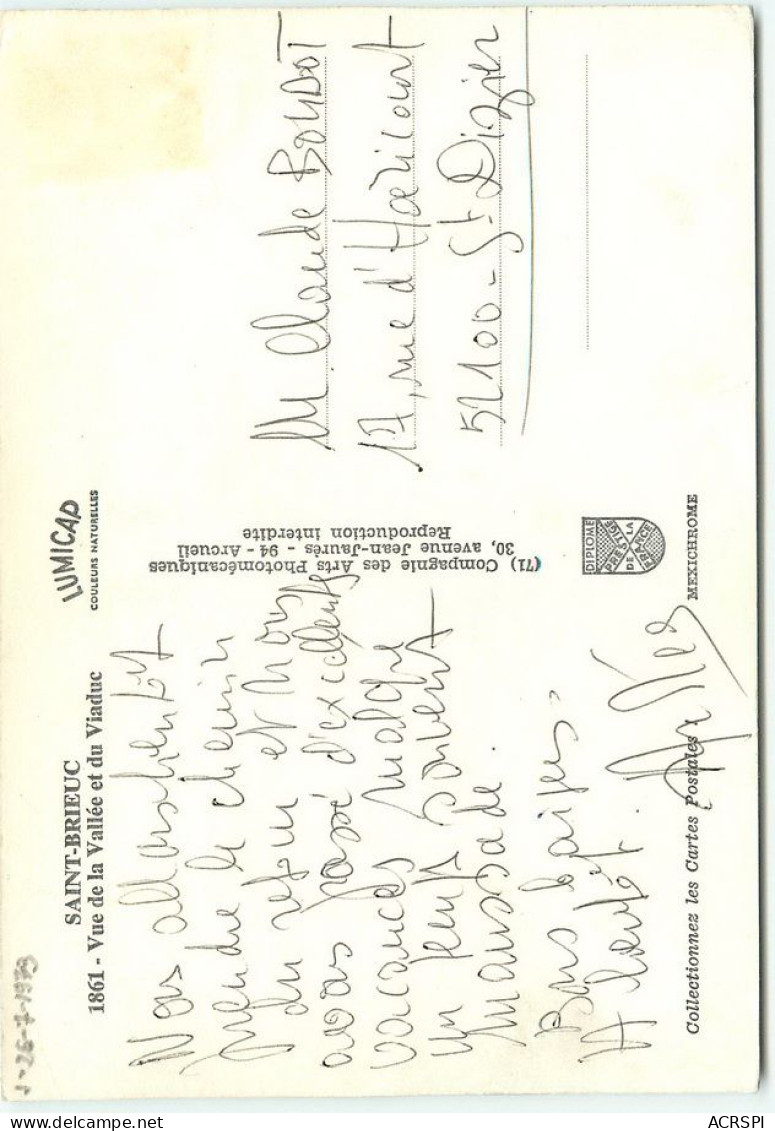 SAINT-BRIEUC
1861 - Vue de la Vallée et du Viaduc
LUMICAP
COULEURS NATURELLES
Nous allons bientôt
prendre le chemin
du retour et nous
avons passé d'excellents
vacances malgré
un temps souvent
maussade.
Bons baisers.
A bientôt.
Collectionnez les Cartes Postales !
(71) Compagnie des Arts Photomécaniques
30, avenue Jean-Jaurès - 94 - Arcueil
Reproduction interdite
M. Claude BOUDOT
17, rue d'Haricourt
52100 - St Dizier
DIPLOME
PRESTIGE
DE LA
FRANCE
MEXICHROME
26-7-1973
delcampe.net
ACRSPI